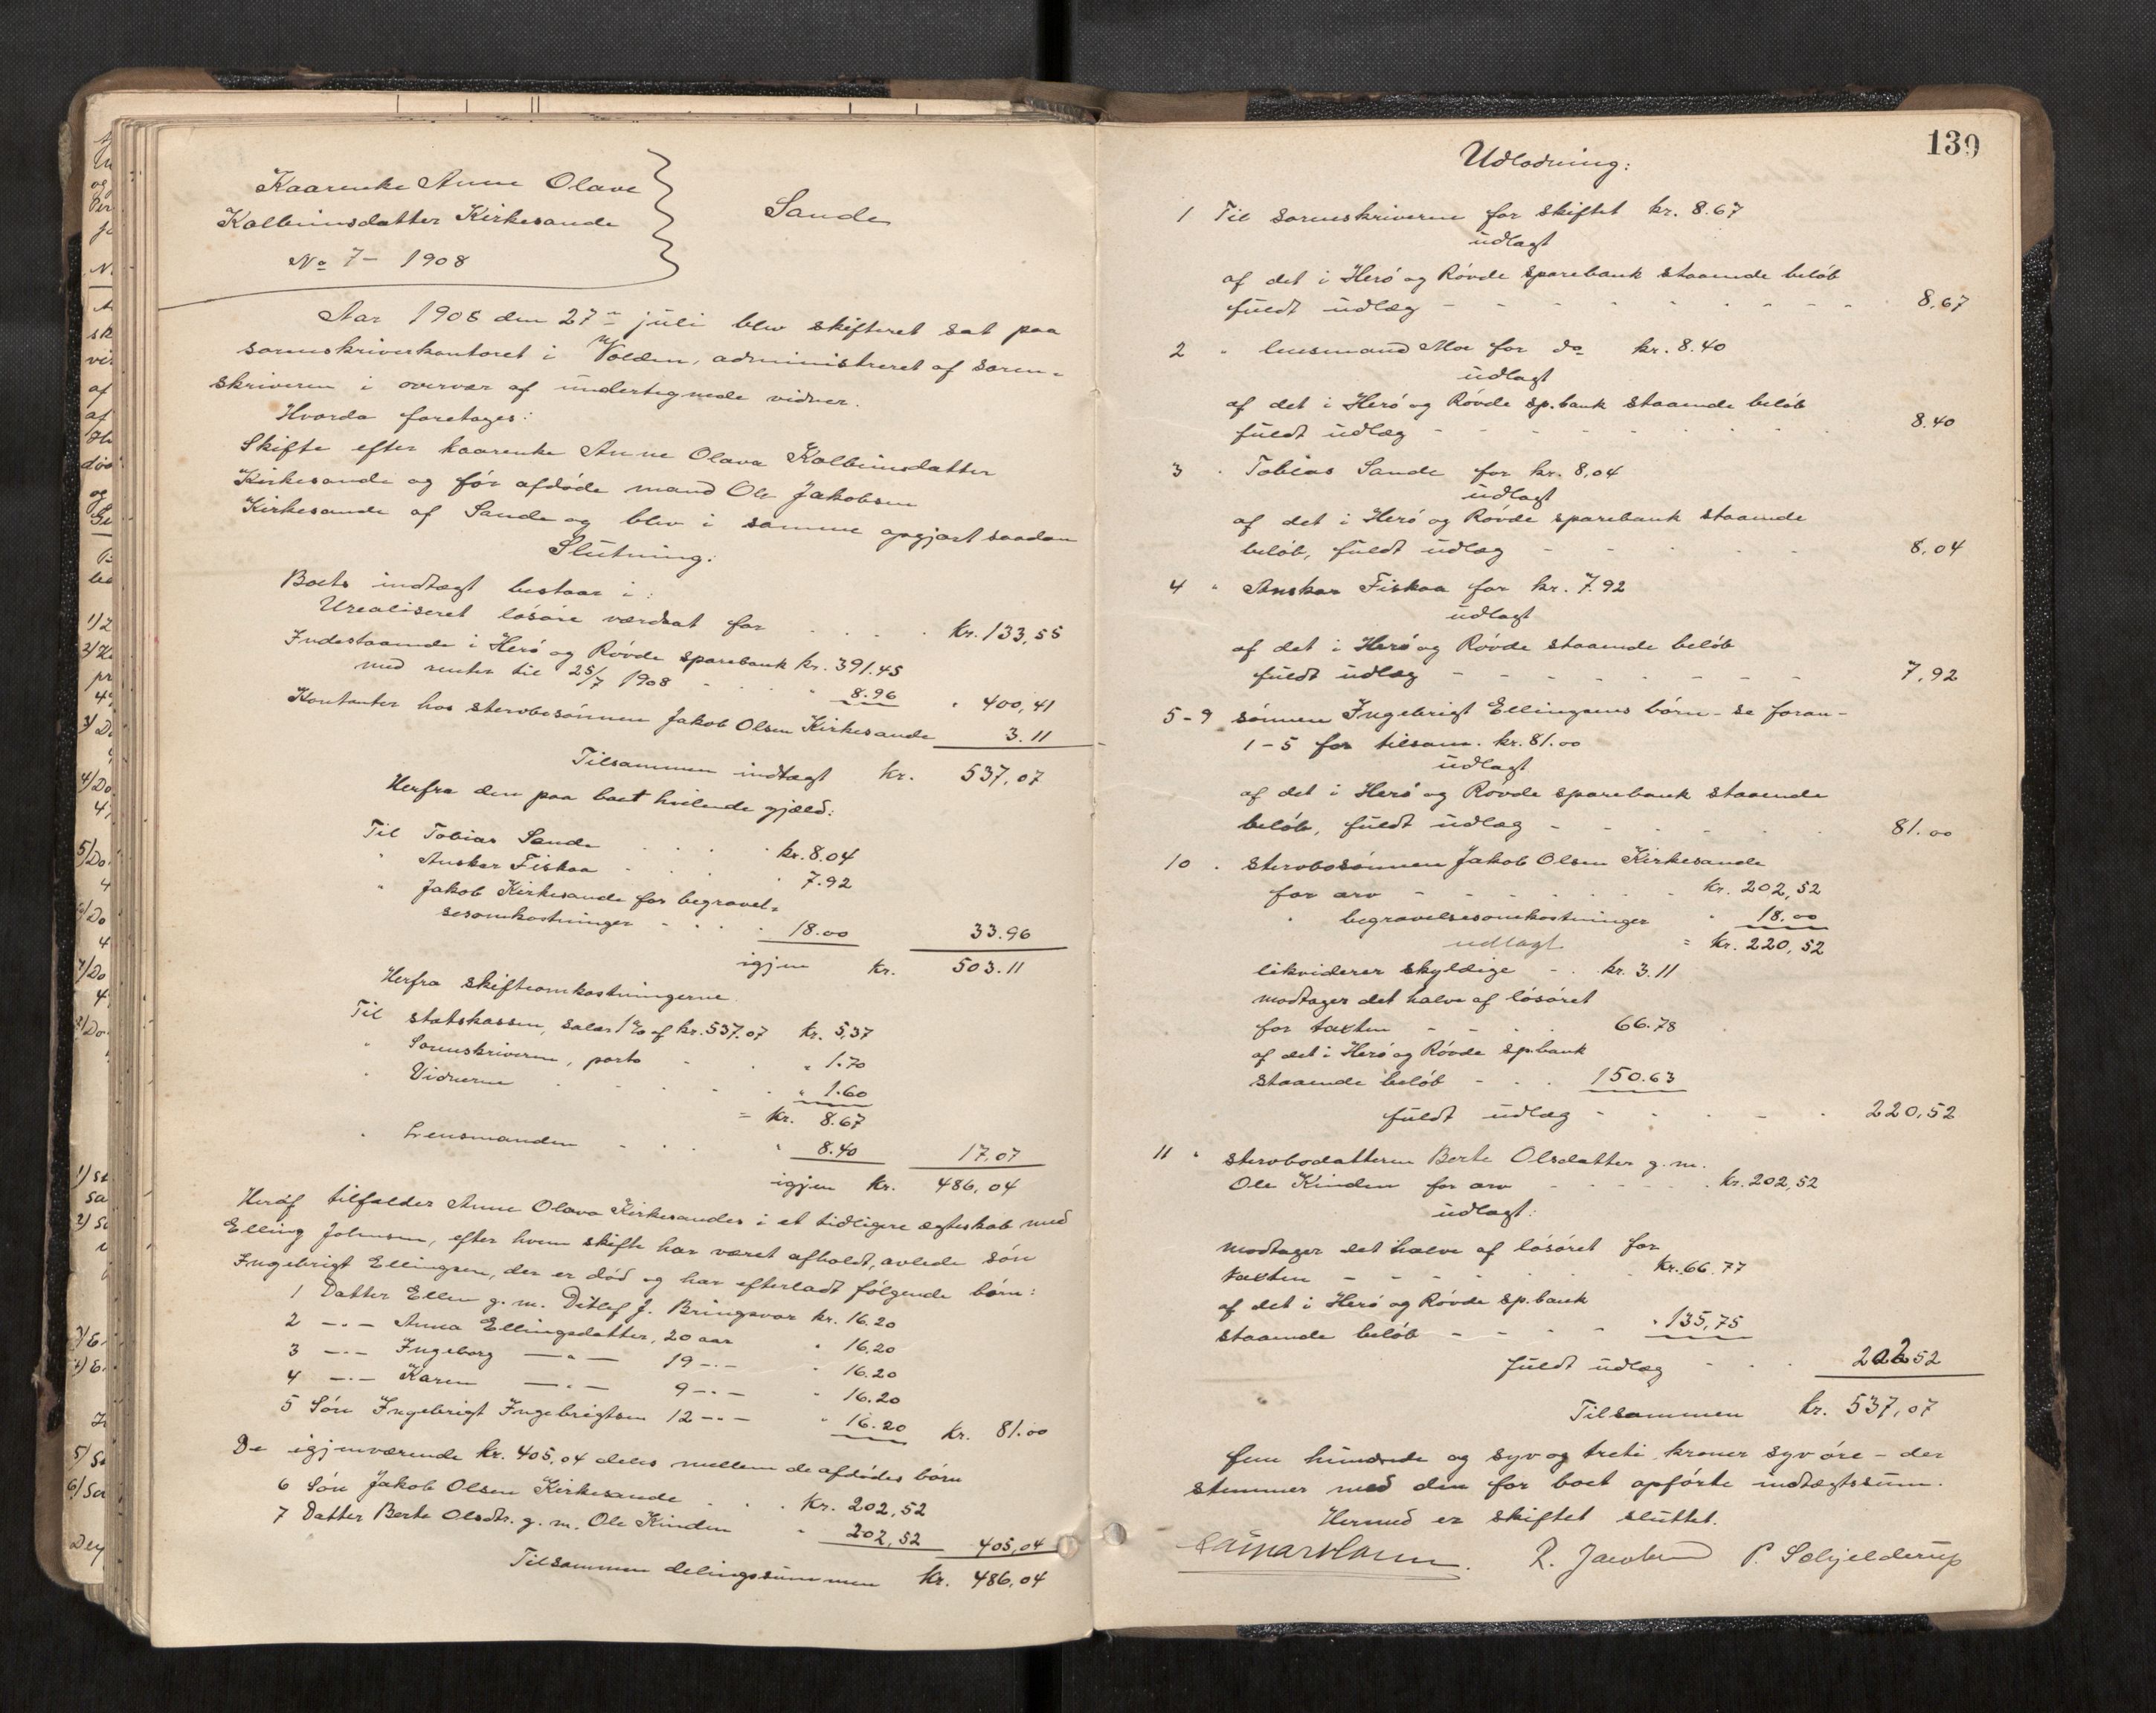 Kaarenke Anne Olave
Kolbeinsdatter Kirkesande
No 7 - 1908
Sande
Aar 1908 den 27de juli blev skifteret sat paa
sorenskriverkontoret i Volden, administreret af soren=
skriveren i overvær af undertegnede vidner.
Hvorda foretages:
Skifte efter kaarenke Anne Olava Kolbeinsdatter
Kirkesande og før afdøde mand Ole Jakobsen
Kirkesande af Sande og blev i samme opgjort saadan
Slutning:
Boets indtægt bestaar i:
Urealiseret løsøre værdsat for . . . . kr. 133,55
Indestaaende i Herø og Røvde sparebank kr. 391.45
med renter til 25/7 1908 - . . " 8.96 " 400,41
Kontanter hos sterbosønnen Jakob Olsen Kirkesande 3.11
Tilsammen indtægt kr. 537,07
Herfra den paa boet hvilende gjæld:
Til Tobias Sande . . . . kr. 8.04
" Ansker Fiskaa - . . . " 7.92
" Jakob Kirkesande for begravel=
sesomkostninger - . . . 18.00 33.96
igjen kr. 503.11
Herfra skifteomkostningerne.
Til statskassen, salær 1% af kr. 537.07 kr. 5,37
" Sorenskriveren, porto - . " 1.70
" Vidnerne . - . - . " 1.60
= kr. 8.67
" Lensmanden - . . " 8.40 17.07
igjen kr. 486,04
Heraf tilfalder Anne Olava Kirkesandes i et tidligere ægteskab med
Elling Johnsen, efter hvem skifte har været afholdt, avlede søn
Ingebrigt Ellingsen, der er død og har efterladt følgende børn:
1 Datter Ellen g. m. Ditlef J. Bringsvor kr. 16.20
2 -"- Anna Ellingsdatter, 20 aar " 16,20
3 -"- Ingeborg -"- 19 -"- " 16.20
4 -"- Karen -"- 9 -"- " 16.20
5 Søn Ingebrigt Ingebrigtsen 12 -"- " 16.20 kr. 81.00
De igjenværende kr. 405,04 deles mellem de afdødes børn
6 Søn Jakob Olsen Kirkesande . . . kr. 202,52
7 Datter Berte Olsdtr. g. m. Ole Kinden " 202,52 405,04
Tilsammen delingssummen kr. 486,04
139
Udlodning:
1 Til sorenskriveren for skiftet kr. 8.67
udlagt
af det i Herø og Røvde sparebank staaende beløb
fuldt udlæg - - - - 8,67
2 " lensmand Moe for do kr. 8.40
udlagt
af det i Herø og Røvde sp.bank staaende beløb
fuldt udlæg - - - - 8.40
3 " Tobias Sande for kr. 8,04
udlagt
af det i Herø og Røvde sparebank staaende
beløb, fuldt udlæg - - - 8,04
4 " Ansker Fiskaa for kr. 7.92
udlagt
af det i Herø og Røvde staaende beløb
fuldt udlæg - - - - 7,92
5-9 sønnen Ingebrigt Ellingsens børn - se foran -
1-5 for tilsam. kr. 81.00
udlagt
af det i Herø og Røvde sparebank staaende
beløb, fuldt udlæg - - - 81.00
10 " sterbosønnen Jakob Olsen Kirkesande
for arv - - - - kr. 202,52
" begravelsesomkostninger " 18.00
udlagt = kr. 220,52
likviderer skyldige - . kr. 3.11
modtager det halve af løsøret
for taxten - - . 66.78
af det i Herø og Røvde sp.bank
staaende beløb - . . 150.63
fuldt udlæg - . . - . 220,52
11 " sterbodatteren Berte Olsdatter g. m.
Ole Kinden for arv - - - kr. 202,52
udlagt:
modtager det halve af løsøret for
taxten - - - - kr. 66.77
af det i Herø og Røvde sp.bank
staaende beløb - - - - " 135,75
fuldt udlæg - . . 202 52
Tilsammen kr. 537,07
fem hundrede og syv og treti kroner syv øre - der
stemmer med den for boet opførte indtægtssum.
Hermed er skiftet sluttet.
R. Jacobsen P. Schjelderup